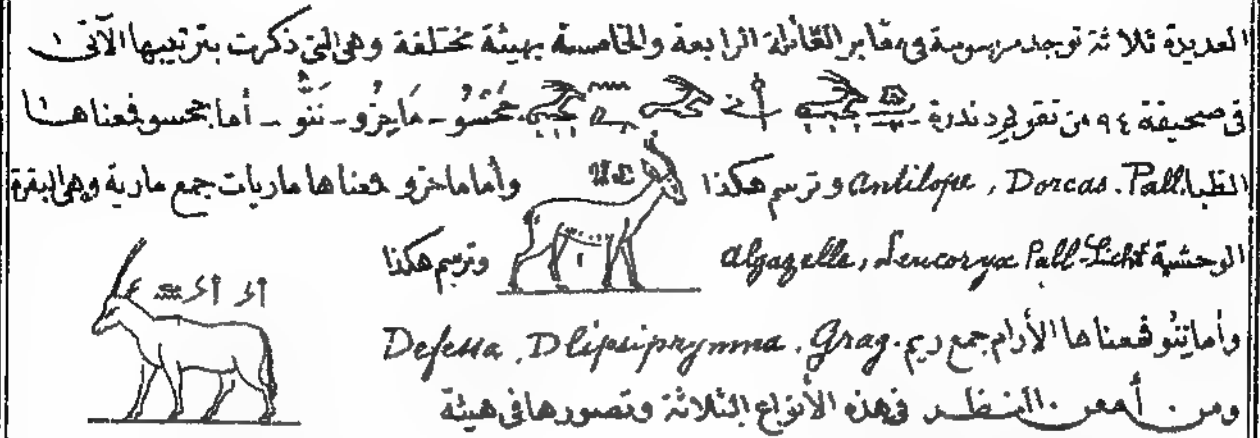 العديدة ثلاثة توجد مرسومة فى مقابر العائلة الرابعة والخامسة بهيئة مختلفة وهى التى ذكرت بترتيبها الآتى
فى صحيفة ٩٤ من تقرير دندرة - حَحَسُو - مَايحزُو - نَنُّو - أما ححسو فمعناها
الظبا Antilope, Dorcas. Pall. وترسم هكذا وأما ماحزو فمعناها ماريات جمع مارية وهى البقرة
الوحشية algazelle, Leucoryx Pall-Licht وترسم هكذا
وأما ننُو فمعناها الأرام جمع ريم. Defessa, D lipsiprymma, Gray.
ومن أمعن النظر فى هذه الأنواع الثلاثة وتصورها فى هيئة